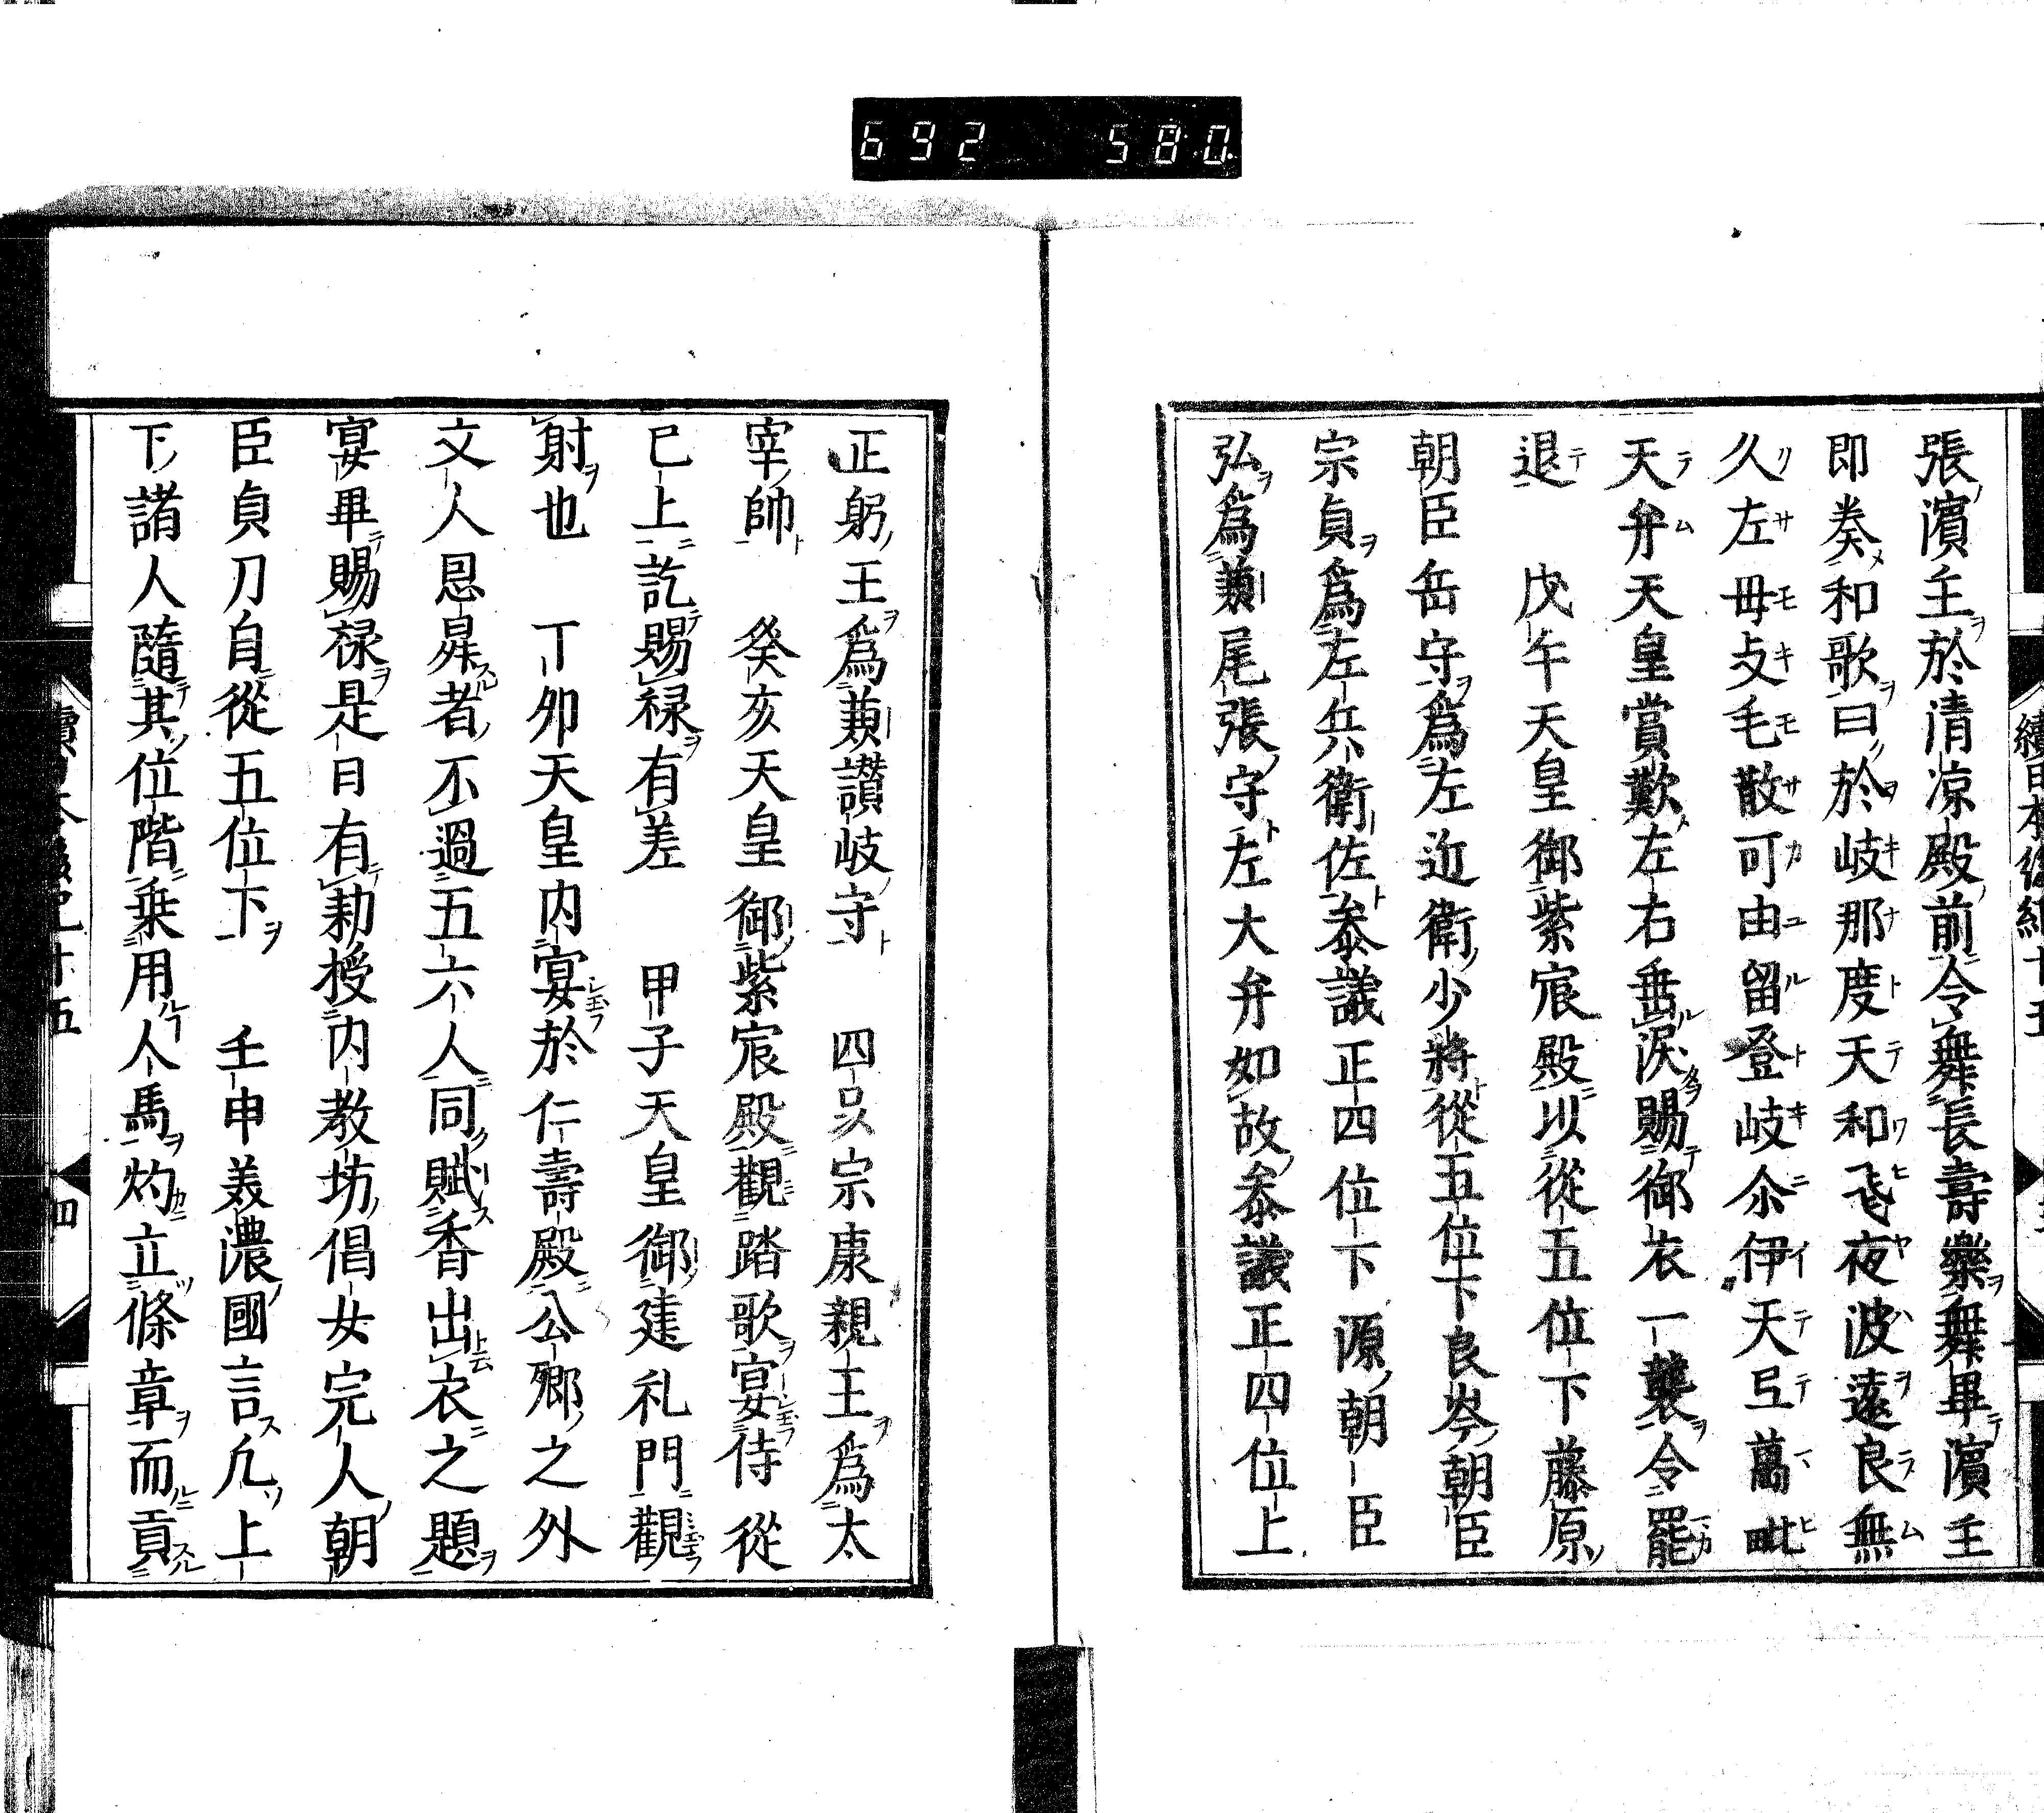 692 580
張濱主於清凉殿前令舞長壽樂舞畢濱主
即奏和歌曰於岐那度天和飛夜波遠良無
久左毋支毛散可由留登岐尒伊天弖萬毗
天牟天皇賞歎左右垂淚賜御衣一襲令罷
退　戊午天皇御紫宸殿以從五位下藤原
朝臣岳守爲左近衛少將從五位下良岑朝臣
宗貞爲左兵衛佐叅議正四位下源朝臣
弘爲兼尾張守左大弁如故叅議正四位上
正躬王爲兼讃岐守　四品宗康親王爲太
宰帥　癸亥天皇御紫宸殿觀踏歌宴侍從
已上訖賜祿有差　甲子天皇御建礼門觀
射也　丁卯天皇内宴於仁壽殿公卿之外
文人恩昇者不過五六人同賦香出衣之題
宴畢賜祿是日有勅授内教坊倡女完人朝
臣貞刀自從五位下　壬申美濃國言凢上
下諸人隨其位階乗用人馬灼立條章而貢